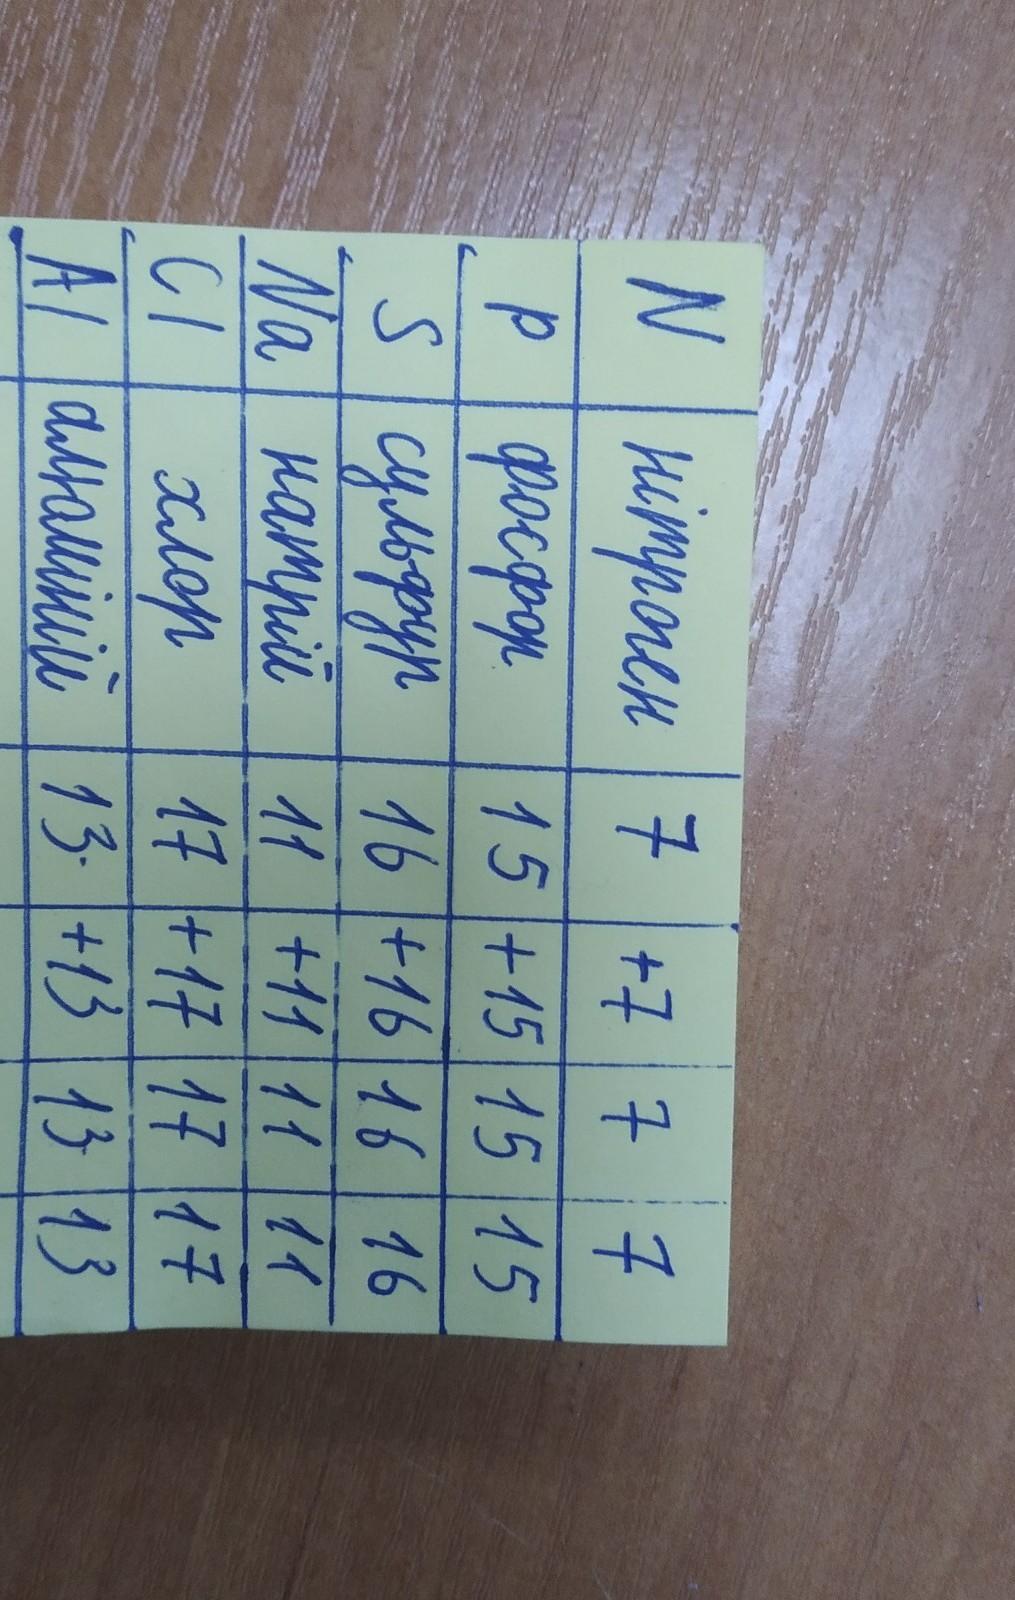 N нітроген 7 +7 7 7
P фосфор 15 +15 15 15
S сульфур 16 +16 16 16
Na натрій 11 +11 11 11
Cl хлор 17 +17 17 17
Al алюміній 13 +13 13 13